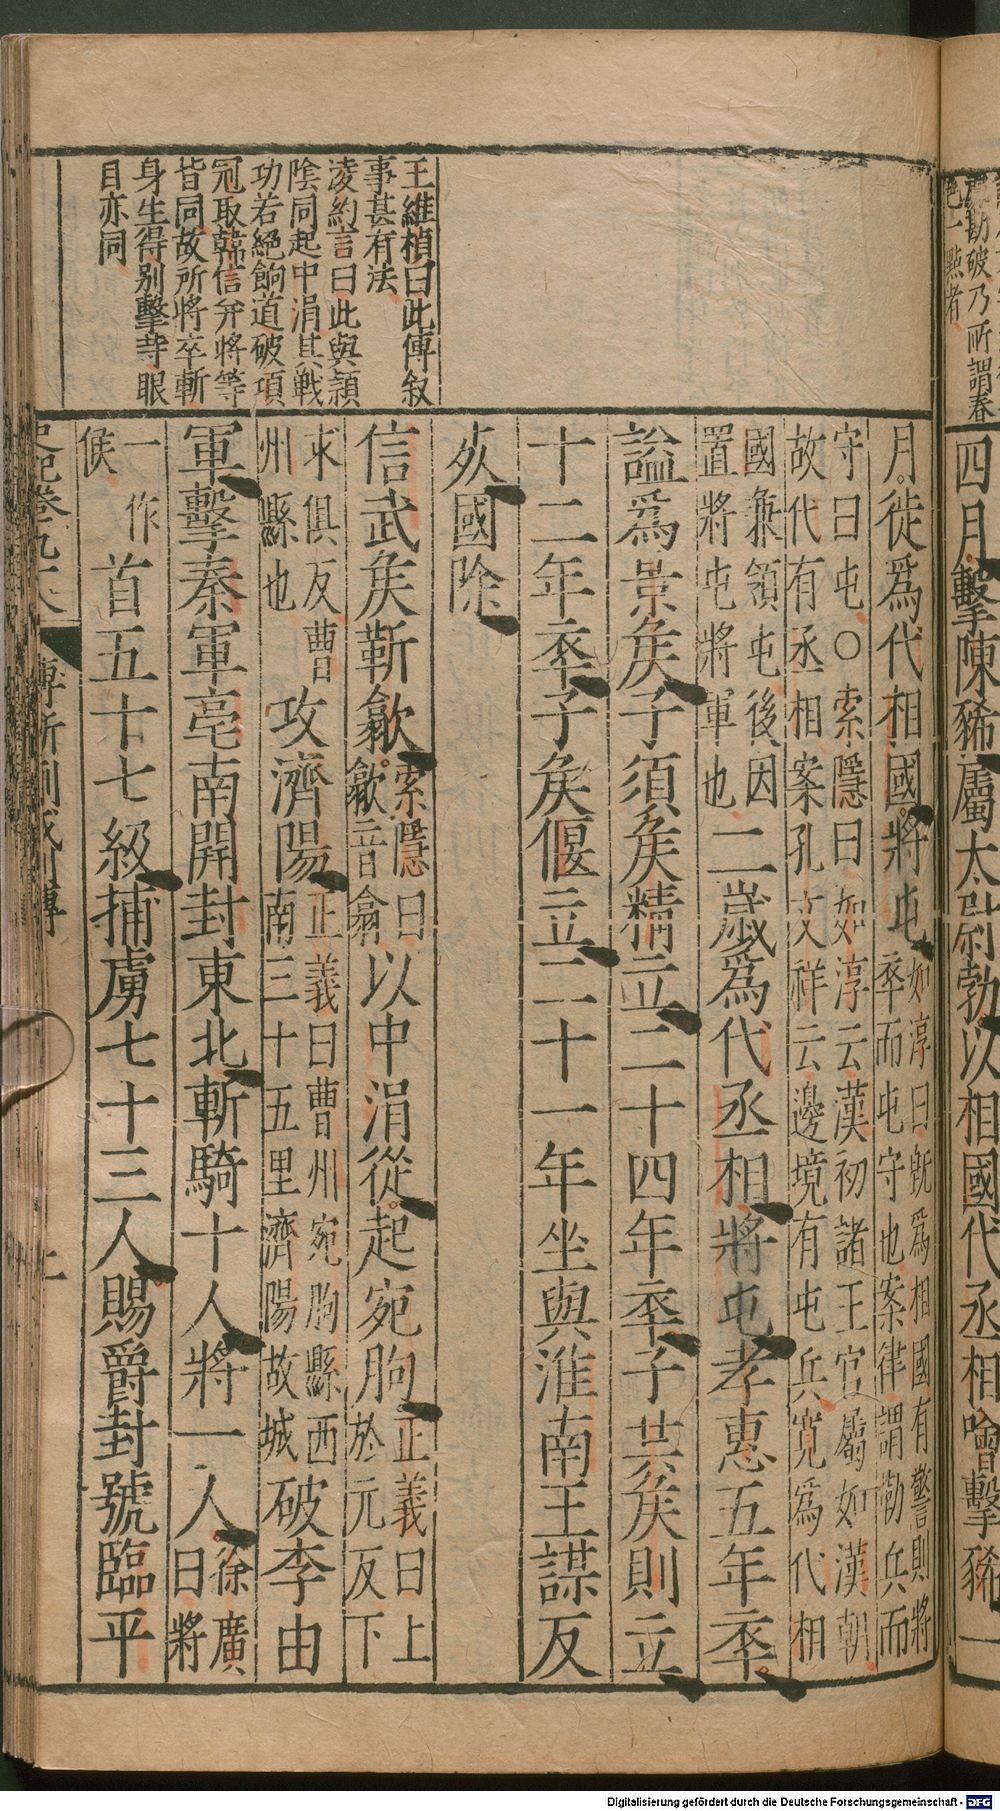 勘破乃所謂春
色一點者
四月擊陳豨屬太尉勃以相國代丞相噲擊豨一
月徙爲代相國將屯
如淳曰旣爲相國有警則將
卒而屯守也案律謂勒兵而
守曰屯○索隱曰如淳云漢初諸王官屬如漢朝
故代有丞相案孔文祥云邊境有屯兵寬爲代相
國兼領屯後因
置將屯將軍也
二歲爲代丞相將屯孝惠五年卒
謚爲景矦子須矦精立二十四年卒子共矦則立
十二年卒子矦偃立二十一年坐與淮南王謀反
死國除
王維楨曰此傳叙
事甚有法
凌約言曰此與頴
陰同起中涓其戰
功若絕餉道破項
冠取韓信并將等
皆同故所將卒斬
身生得別擊等眼
目亦同
信武矦靳歙
索隱曰
歙音翕
以中涓從起宛朐
正義曰上
於元反下
求俱反曹
州縣也
攻濟陽
正義曰曹州宛朐縣西
南三十五里濟陽故城
破李由
軍擊秦軍亳南開封東北斬騎十人將一人
徐廣
曰將
一作
候
首五十七級捕虜七十三人賜爵封號臨平
史記卷九十八
傅靳蒯成列傳